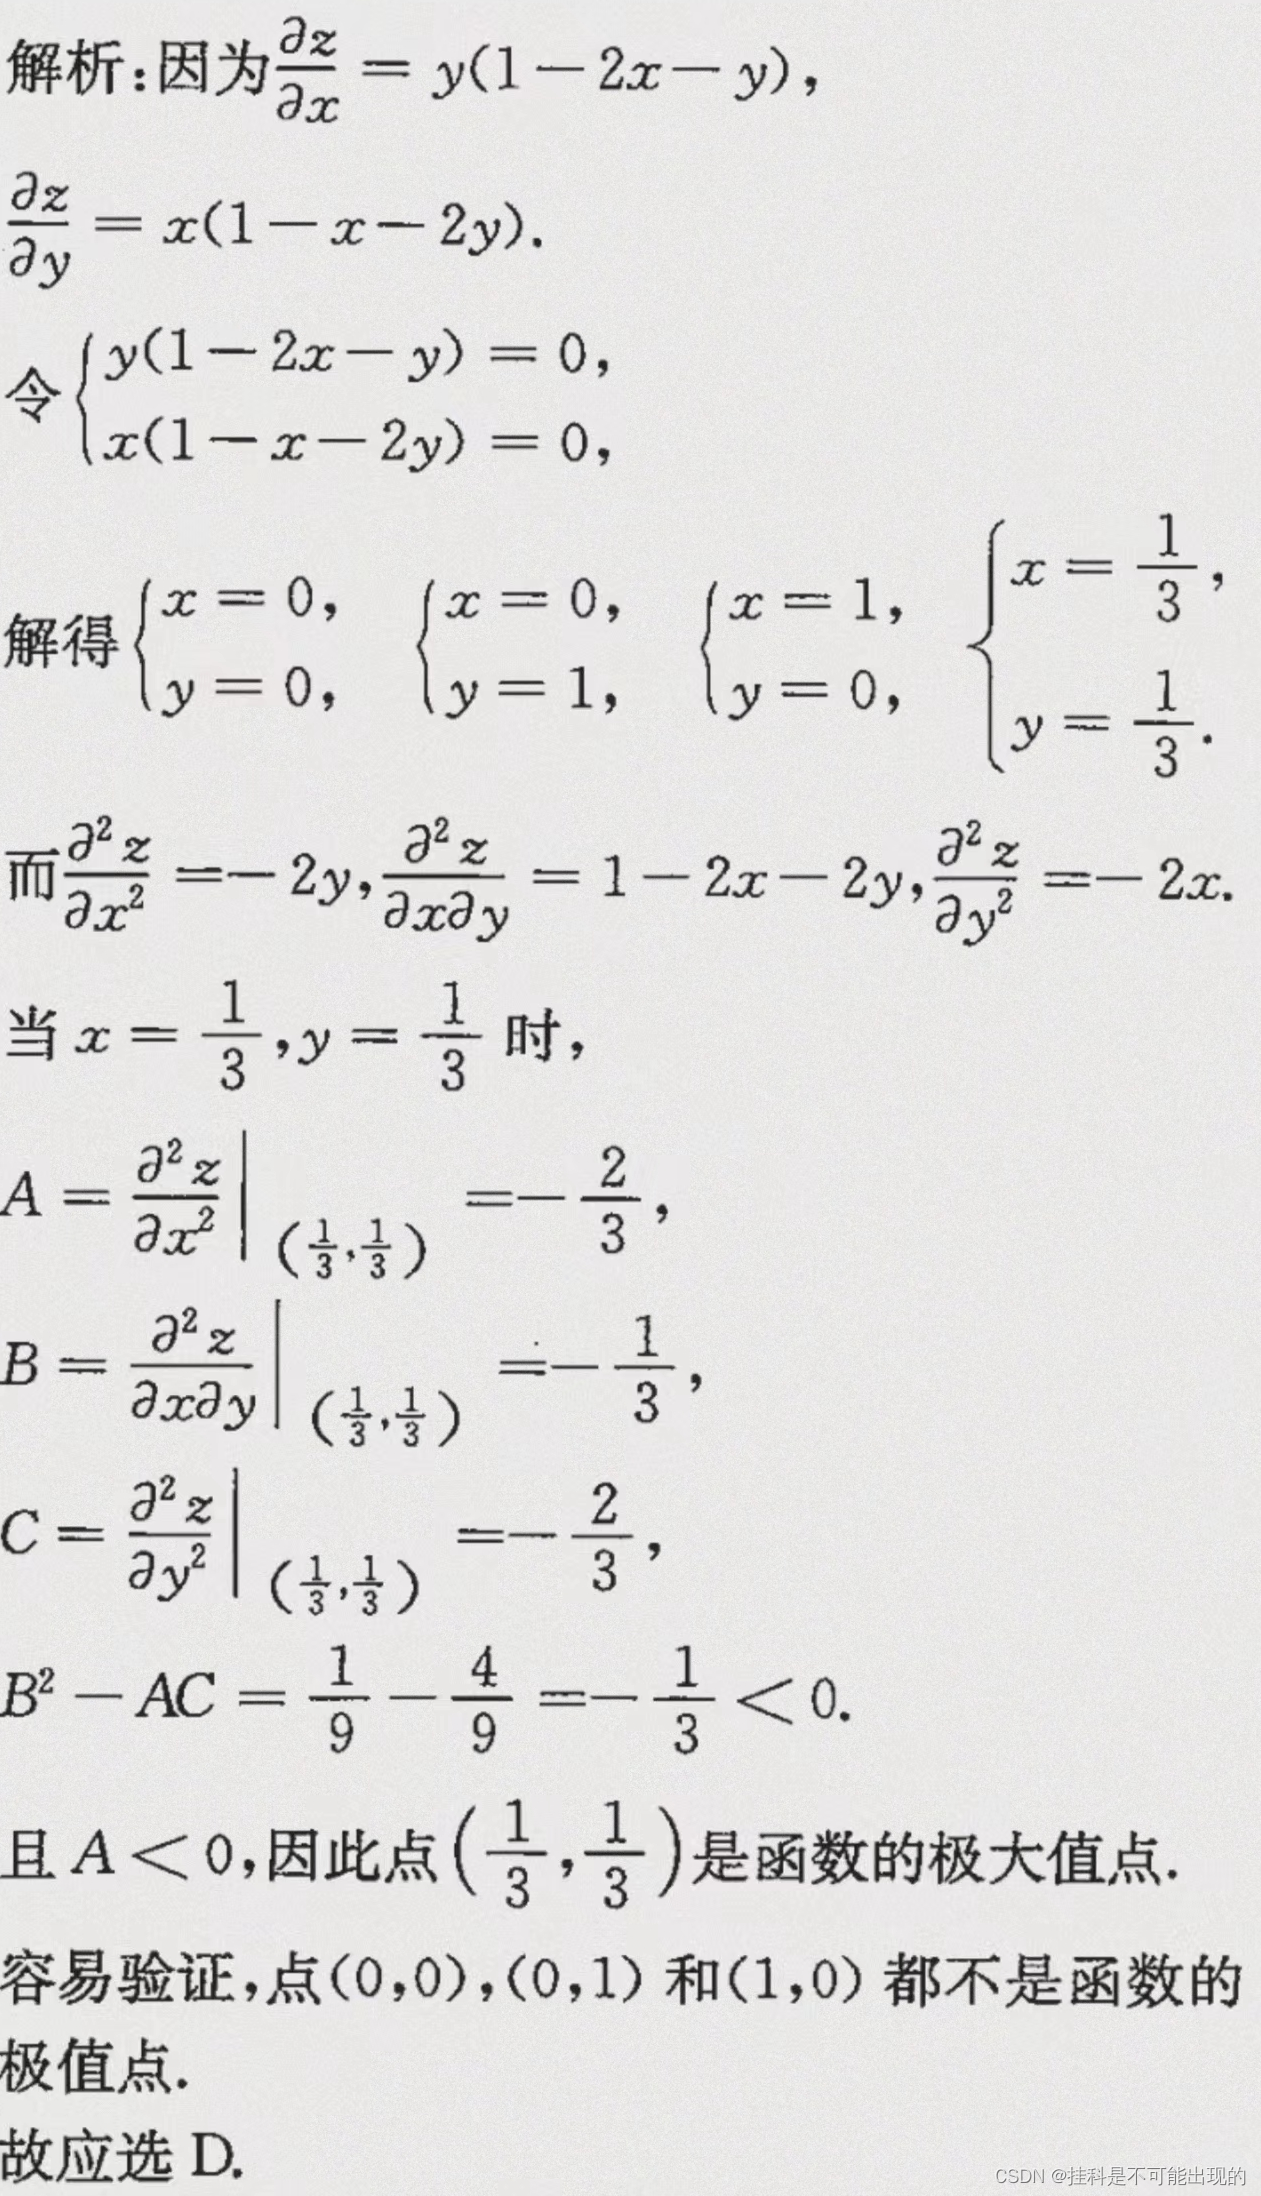 解析:因为∂z/∂x = y(1－2x－y),
∂z/∂y = x(1－x－2y).
令{y(1－2x－y) = 0, x(1－x－2y) = 0,
解得{x = 0, y = 0, {x = 0, y = 1, {x = 1, y = 0, {x = 1/3, y = 1/3.
而∂²z/∂x² =－2y,∂²z/∂x∂y = 1－2x－2y,∂²z/∂y² =－2x.
当 x = 1/3,y = 1/3 时,
A = ∂²z/∂x²|(1/3,1/3) =－2/3,
B = ∂²z/∂x∂y|(1/3,1/3) =－1/3,
C = ∂²z/∂y²|(1/3,1/3) =－2/3,
B²－AC = 1/9－4/9 =－1/3 < 0.
且 A < 0,因此点(1/3,1/3)是函数的极大值点.
容易验证,点(0,0),(0,1) 和(1,0) 都不是函数的
极值点.
故应选 D.
CSDN @挂科是不可能出现的